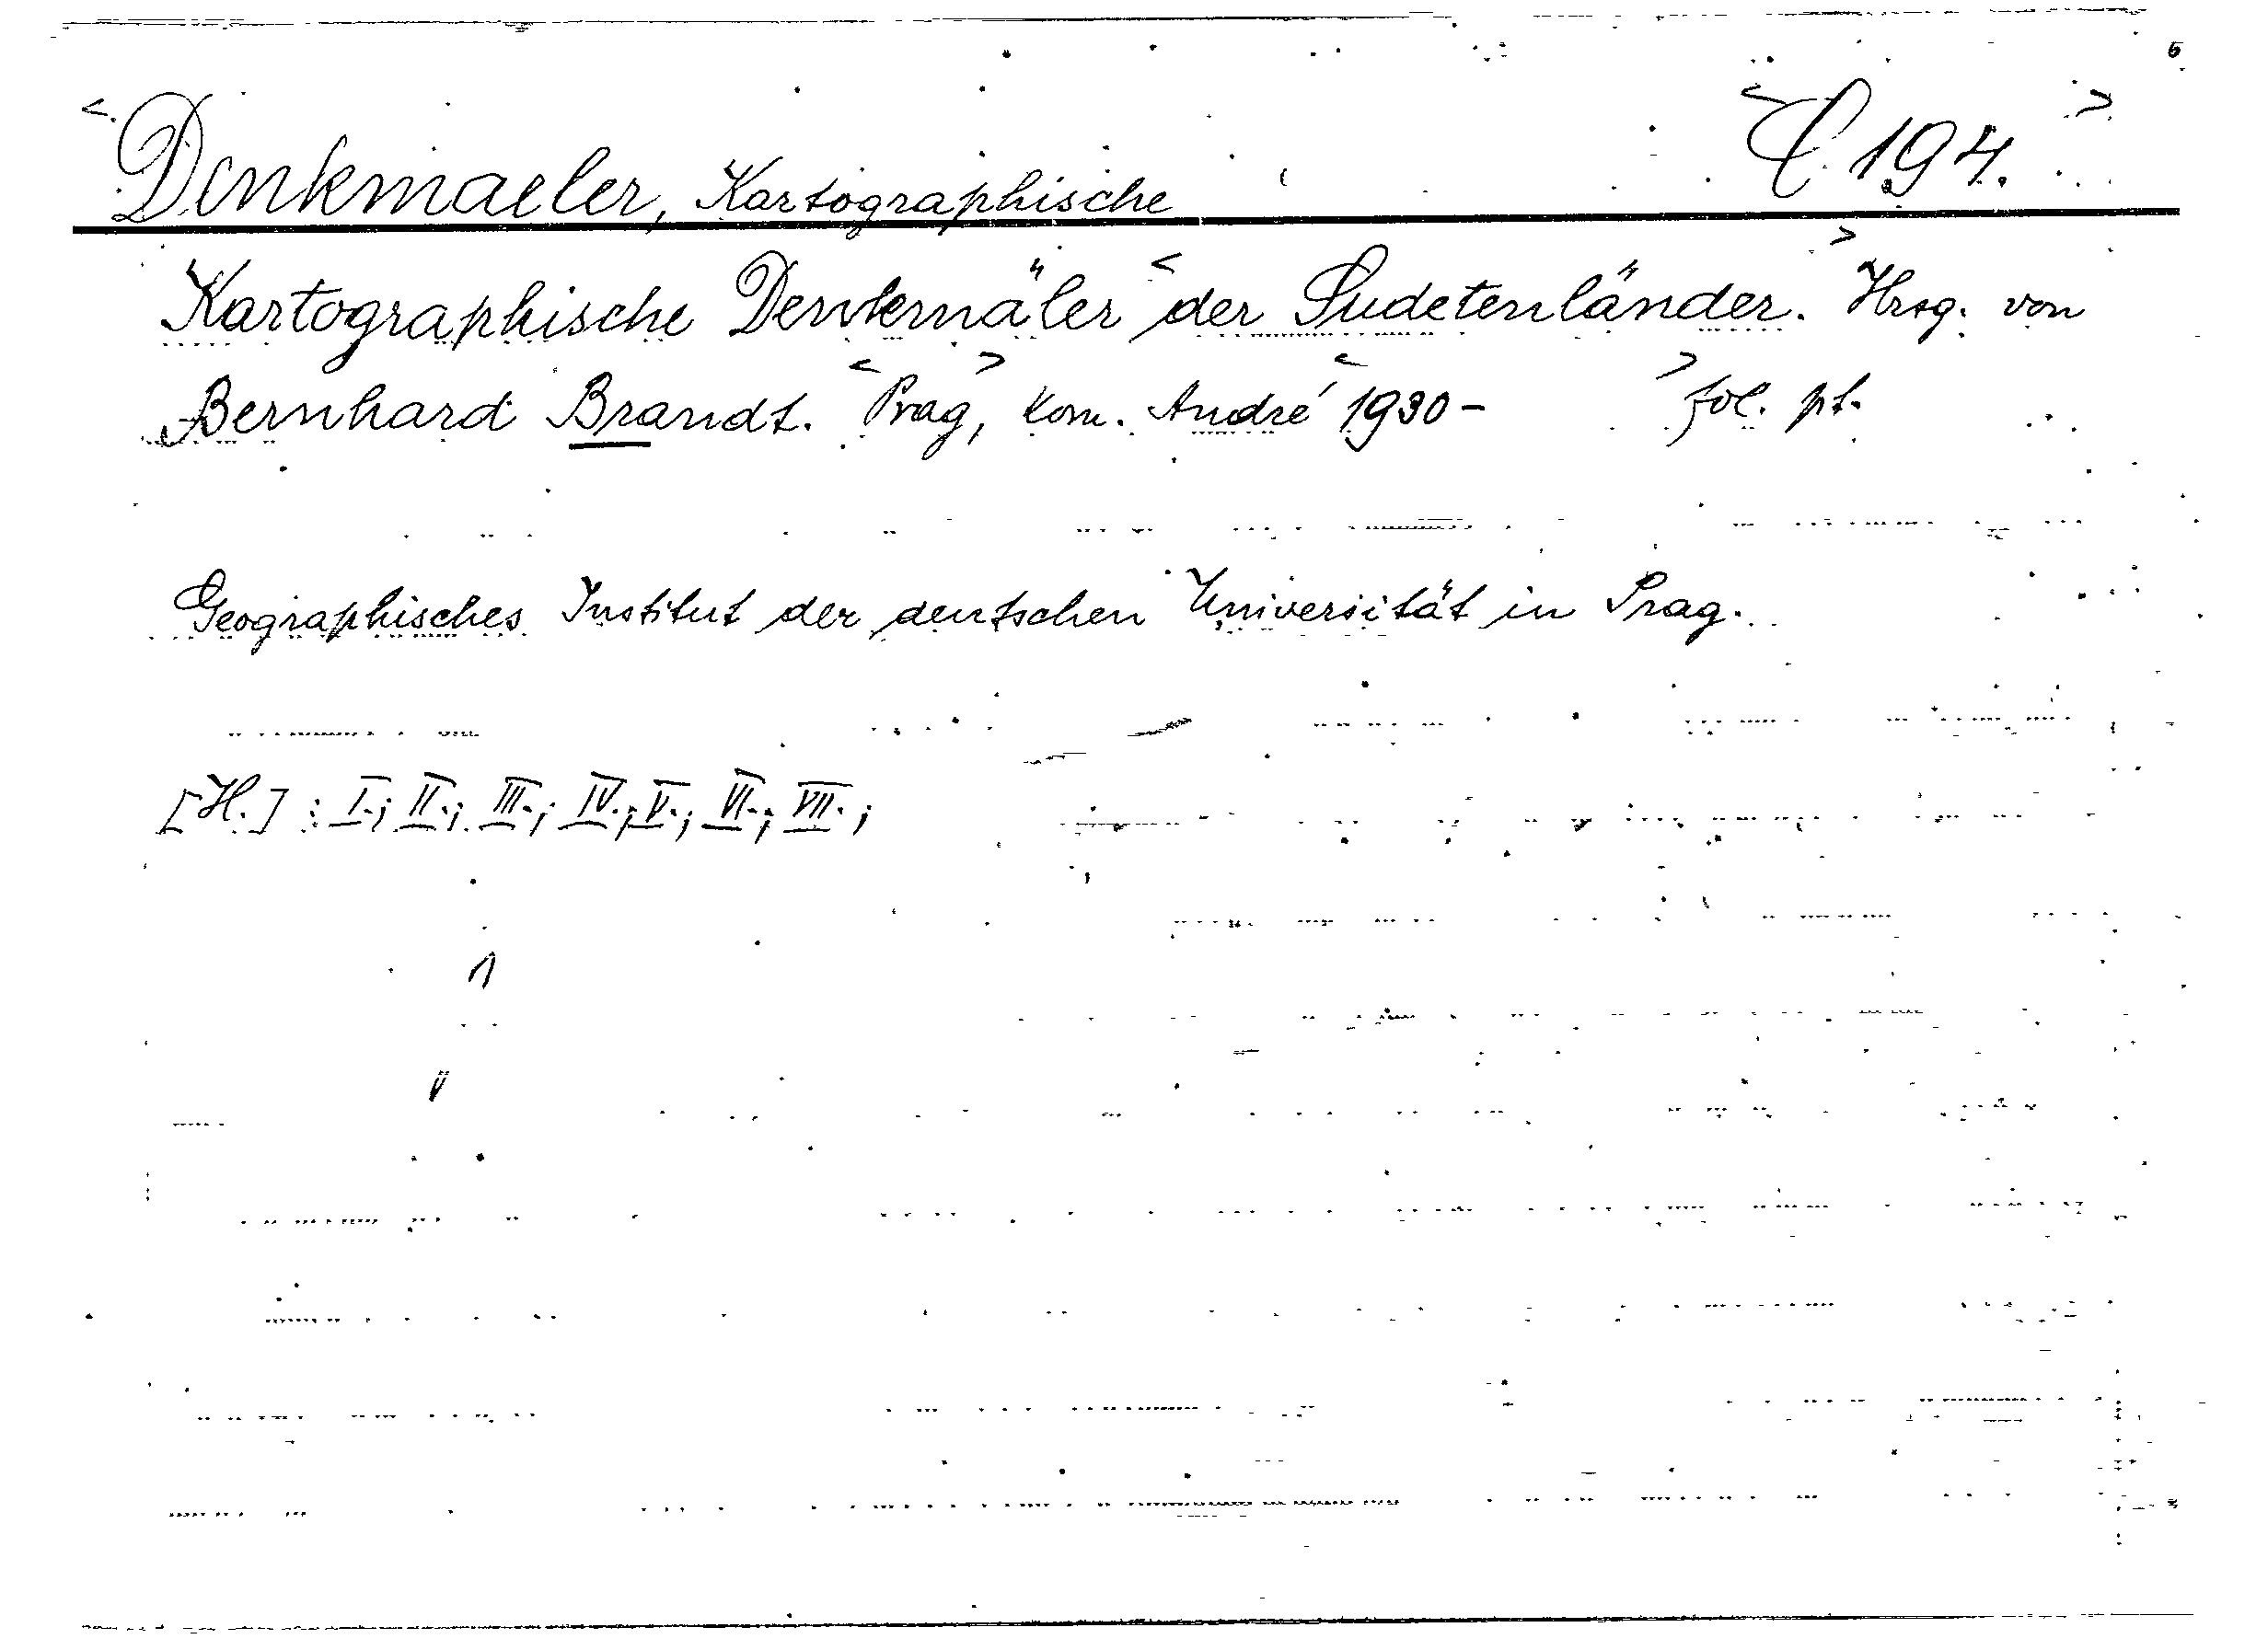 <Denkmaeler, Kartographische <C 194.>
Kartographische Denkmäler <der Sudetenländer.> Hrsg. von
Bernhard Brandt. <Prag,> kom. André <1930- > fol. pt.
Geographisches Institut der deutschen Universität in Prag.
[H.] : I.; II.; III.; IV.; V.; VI.; VII.;